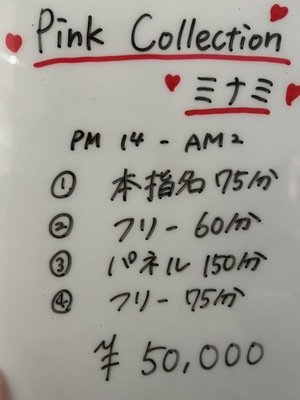 Pink Collection
ミナミ
PM 14 - AM2
① 本指名 75分
② フリー 60分
③ パネル 150分
④ フリー 75分
¥ 50,000